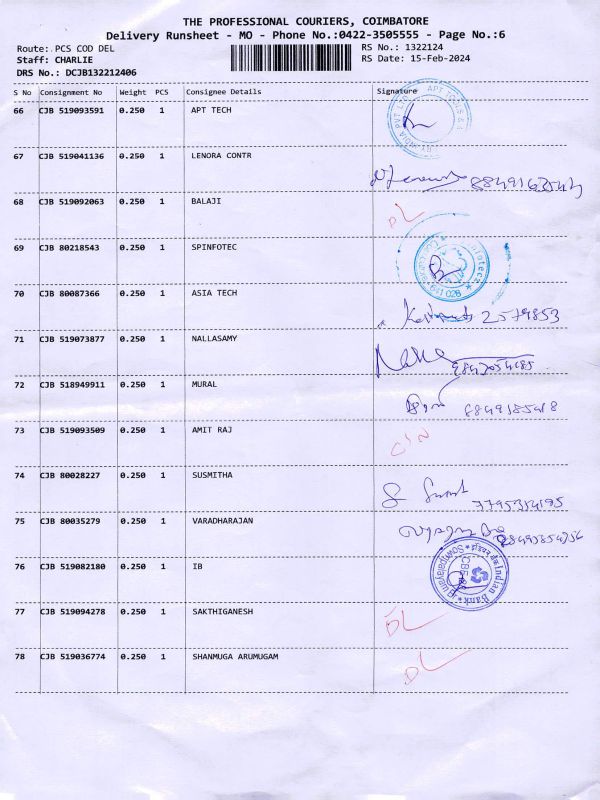 THE PROFESSIONAL COURIERS, COIMBATORE
Delivery Runsheet - MO - Phone No.:0422-3505555 - Page No.:6
Route: PCS COD DEL RS No.: 1322124
Staff: CHARLIE RS Date: 15-Feb-2024
DRS No.: DCJB132212406
S No Consignment No Weight PCS Consignee Details Signature
66 CJB 519093591 0.250 1 APT TECH
67 CJB 519041136 0.250 1 LENORA CONTR
68 CJB 519092063 0.250 1 BALAJI
DL
69 CJB 80218543 0.250 1 SPINFOTEC
70 CJB 80087366 0.250 1 ASIA TECH
2579853
71 CJB 519073877 0.250 1 NALLASAMY
72 CJB 518949911 0.250 1 MURAL
73 CJB 519093509 0.250 1 AMIT RAJ
74 CJB 80028227 0.250 1 SUSMITHA
75 CJB 80035279 0.250 1 VARADHARAJAN
76 CJB 519082180 0.250 1 IB
Indian Bank
77 CJB 519094278 0.250 1 SAKTHIGANESH
DL
78 CJB 519036774 0.250 1 SHANMUGA ARUMUGAM
DL